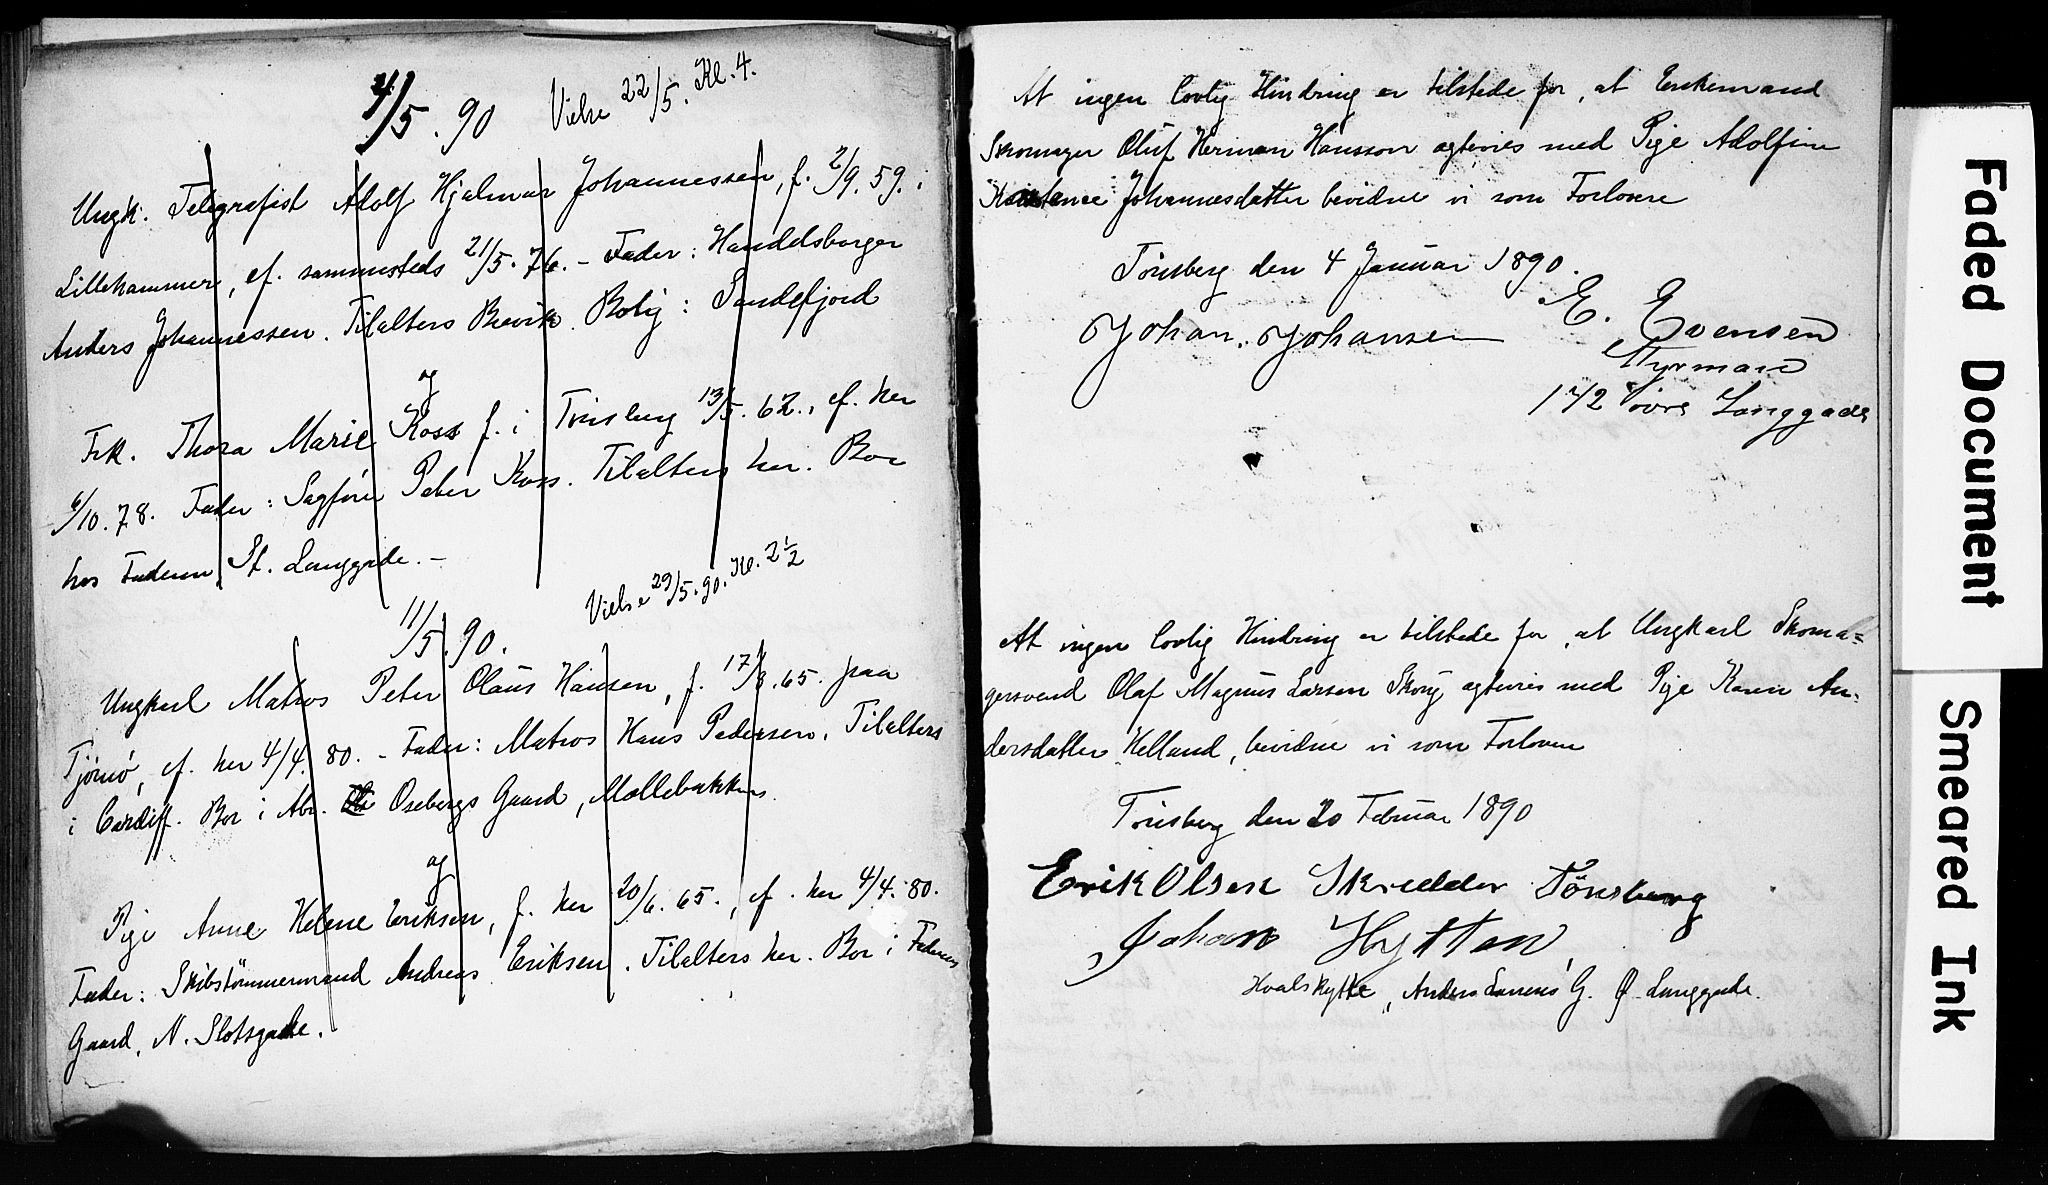 4/5. 90 Vielse 22/5. Kl. 4.
Ungk. Telegrafist Adolf Hjalmar Johannessen, f. 2/9. 59. i
Lillehammer, cf. sammesteds 21/5. 76. – Fader: Handelsborger
Anders Johannessen. Tilalters Brevik. Bolig: Sandefjord
og
Frk. Thora Marie Koss f. i Tönsberg 13/5. 62., cf. her
6/10. 78. Fader: Sagförer Peter Koss. Tilalters her. Bor
hos Faderen St. Langgade. –
11/5. 90. Vielse 29/5. 90. Kl. 2 1/2
Ungkarl Matros Peter Olaus Hansen, f. 17/8. 65. paa
Tjömö, cf. her 4/4. 80. – Fader: Matros Hans Pedersen. Tilalters
i Cardiff. Bor i Abr. Osebergs Gaard, Møllebakken.
og
Pige Anne Helene Eriksen, f. her 20/6. 65., cf. her 4/4. 80.
Fader: Skibstömmermand Andreas Eriksen. Tilalters her. Bor i Faderens
Gaard, N. Slotsgade.
At ingen lovlig Hindring er tilstede for, at Enkemand
Skomager Oluf Herman Hansson agtevies med Pige Adolfine
Konstance Johannesdatter bevidne vi som Forlovere
Tönsberg den 4 Januar 1890.
Johan Johansen E. Evensen
Styrmand
172 övre Langgade
At ingen lovlig Hindring er tilstede for, at Ungkarl Skoma=
gersvend Olaf Magnus Larsen Skoug agtevies med Pige Karen An=
dersdatter Helland, bevidne vi som Forlovere
Tönsberg den 20 Februar 1890
Erik Olsen Skredder Tönsberg
Johan Hytten
Hvalskytte, Anders Larsens G. Ø. Langgade.
Faded Document
Smeared Ink